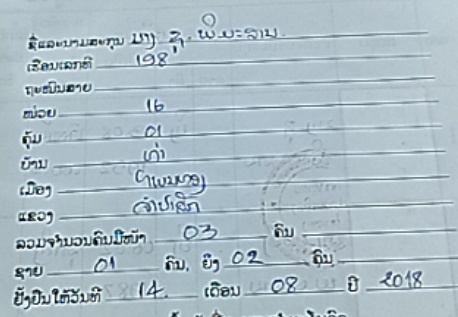 ຊື່ແລະນາມສະກຸນ ນາງ ຈຸ. ພິມະສານ
ເຮືອນເລກທີ 198
ຖະໜົນສາຍ
ໜ່ວຍ 16
ຄຸ້ມ 01
ບ້ານ ເກ່າ
ເມືອງ
ແຂວງ ຈຳປາສັກ
ລວມຈຳນວນຄົນມີໜ້າ 03 ຄົນ
ຊາຍ 01 ຄົນ, ຍິງ 02 ຄົນ
ຢັ້ງຢືນໃຫ້ວັນທີ 14. ເດືອນ 08 ປີ 2018